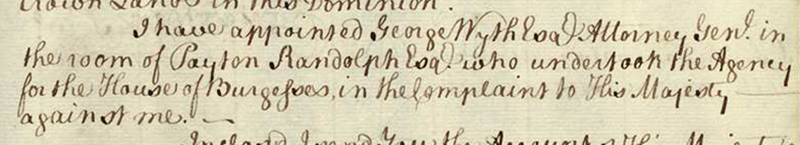 Crown Lands in this Dominion.
I have appointed George Wyth Esqr. Attorney Genl. in
the room of Payton Randolph Esqr. who undertook the Agency
for the House of Burgesses, in the Complaint to His Majesty
against me. —
the Account of